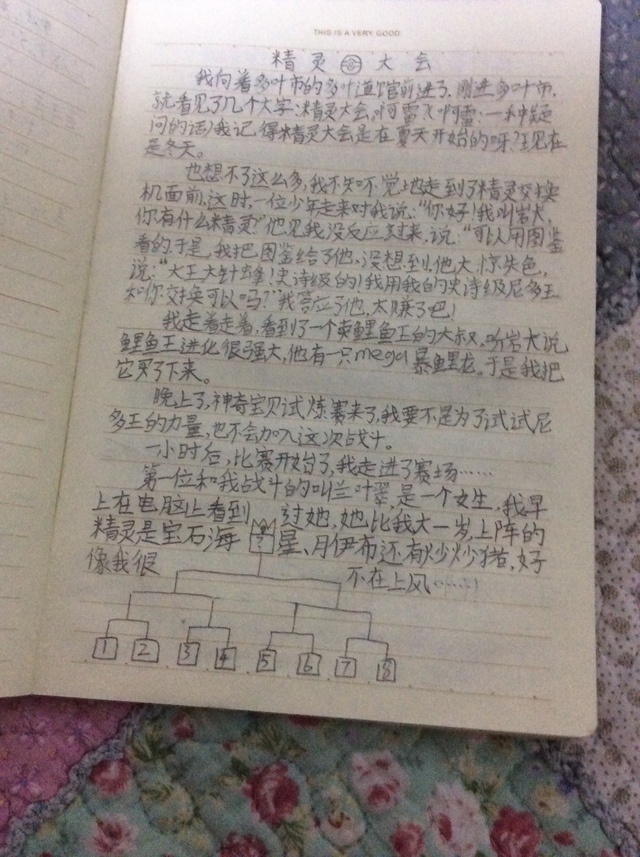 THIS IS A VERY GOOD
精灵 大会
我向着多叶市的多叶道馆前进了,刚进多叶市,
就看见了几个大字:精灵大会。啊雷?(啊雷:一种疑
问的话)我记得精灵大会是在夏天开始的呀?!现在
是冬天。
也想不了这么多,我不知不觉地走到了精灵交换
机面前,这时,一位少年走来对我说:“你好!我叫岩大,
你有什么精灵?”他见我没反应过来,说:“可以用图鉴
看的,于是,我把图鉴给了他,没想到,他大惊失色,
说:“大王大针蜂!史诗级的!我用我的史诗级尼多王
和你交换可以吗?”我答应了他,太赚了吧!
我走着走着,看到了一个卖鲤鱼王的大叔,听岩大说
鲤鱼王进化很强大,他有一只mega暴鲤龙。于是我把
它买了下来。
晚上了,神奇宝贝试炼赛来了,我要不是为了试试尼
多王的力量,也不会加入这次战斗。
一小时后,比赛开始了,我走进了赛场……
第一位和我战斗的叫兰叶翠,是一个女生,我早
上在电脑上看到 过她,她比我大一岁,上阵的
精灵是宝石海 星、月伊布还有炒炒猪,好
像我很 不在上风……!
?
1 2 3 4 5 6 7 8